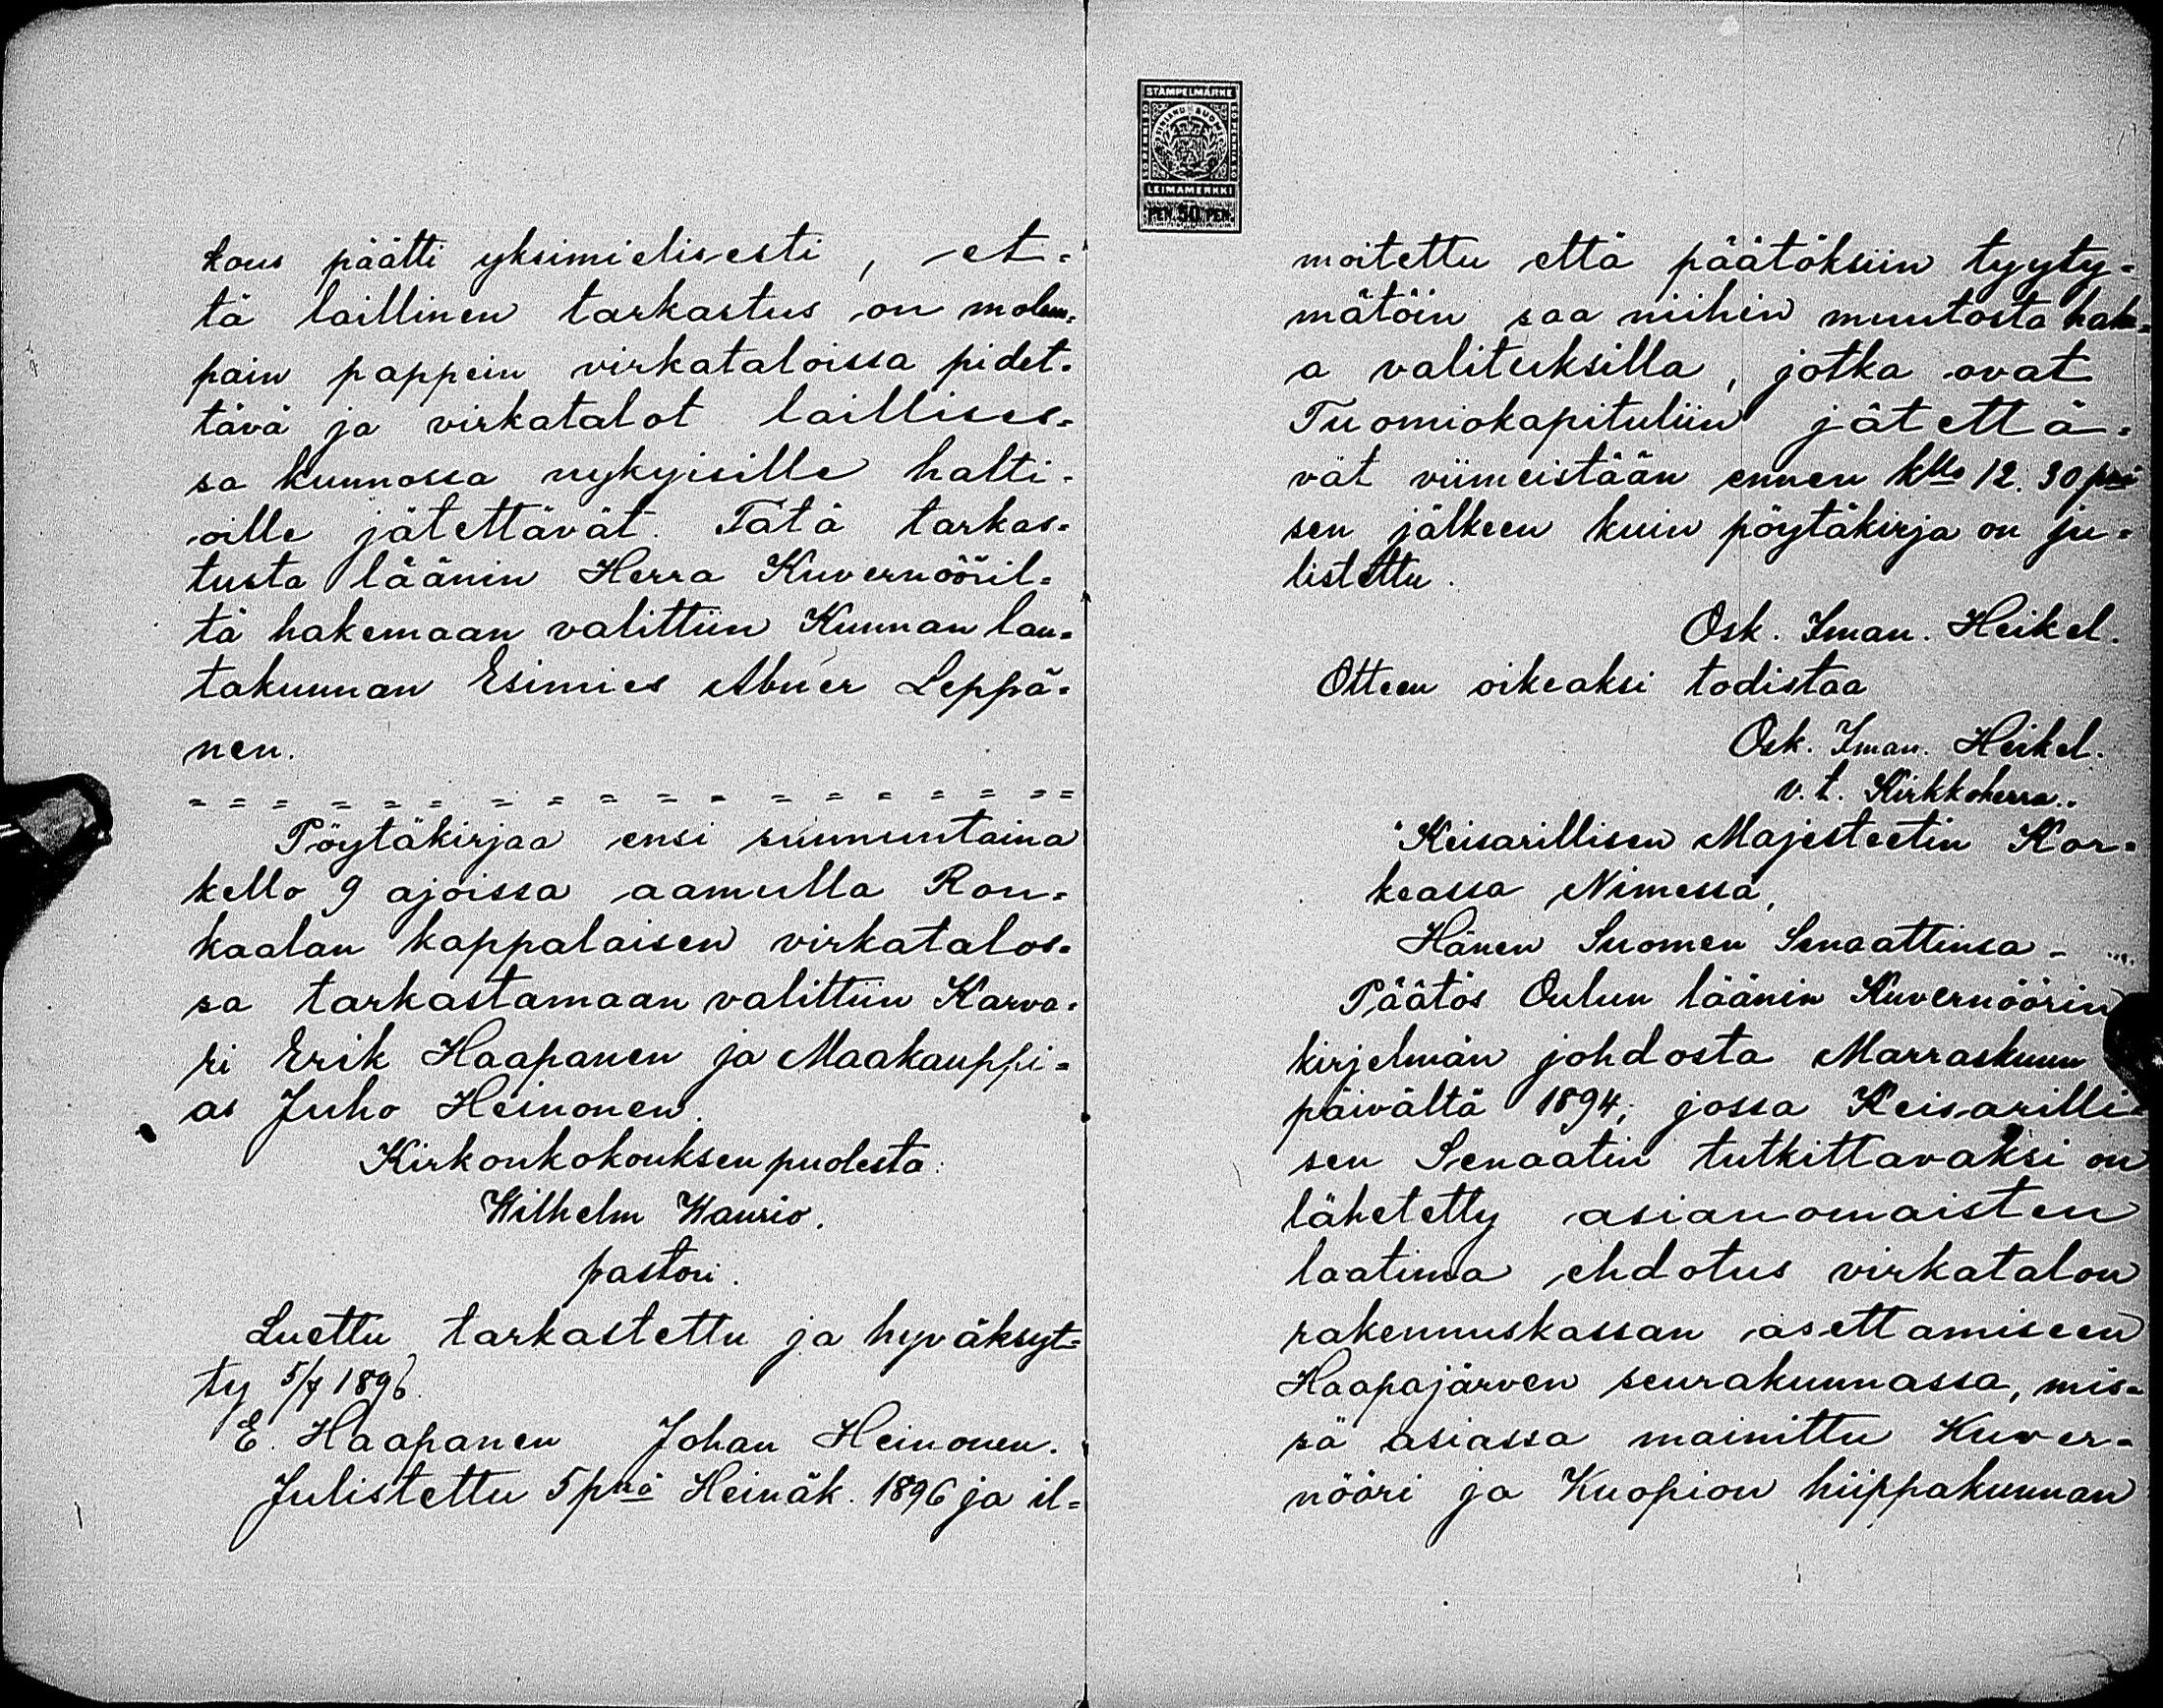 kous päätti yksimielisesti, et-
tä laillinen tarkastus on molem-
pain pappein virkataloissa pidet-
tävä ja virkatalot laillises-
sa kunnossa nykyisille halti-
oille jätettävät. Tätä tarkas-
tusta läänin Herra Kuvernööril-
tä hakemaan valittiin Kunnan lau-
takunnan Esimies Abner Leppä-
nen.
= = = = = = = = = = = = = = = = = =
Pöytäkirjaa ensi sunnuntaina
kello 9 ajoissa aamulla Ron-
kaalan kappalaisen virkatalos-
sa tarkastamaan valittiin Karva-
ri Erik Haapanen ja Maakauppi-
as Juho Heinonen.
Kirkonkokouksen puolesta:
Wilhelm Waurio.
pastori.
Luettu tarkastettu ja hyväksyt-
ty 5/7 1896.
E. Haapanen Johan Heinonen.
Julistettu 5 pnä Heinäk. 1896 ja il-
STÄMPELMÄRKE
FINLAND SUOMI
LEIMAMERKKI
PEN. 50 PEN.
moitettu että päätöksiin tyyty-
mätöin saa niihin muutosta hak-
a valituksilla, jotka ovat
Tuomiokapituliin jätettä-
vät viimeistään ennen kllo 12. 30 pnä
sen jälkeen kuin pöytäkirja on ju-
listettu.
Osk. Iman. Heikel.
Otteen oikeaksi todistaa
Osk. Iman. Heikel.
v.t. Kirkkoherra.
Keisarillisen Majesteetin Kor-
keassa Nimessä,
Hänen Suomen Senaattinsa -
Päätös Oulun läänin Kuvernöörin
kirjelmän johdosta Marraskuun
päivältä 1894; jossa Keisarilli-
sen Senaatin tutkittavaksi on
lähetetty asianomaisten
laatima ehdotus virkatalon
rakennuskassan asettamiseen
Haapajärven seurakunnassa, mis-
sä asiassa mainittu Kuver-
nööri ja Kuopion hiippakunnan